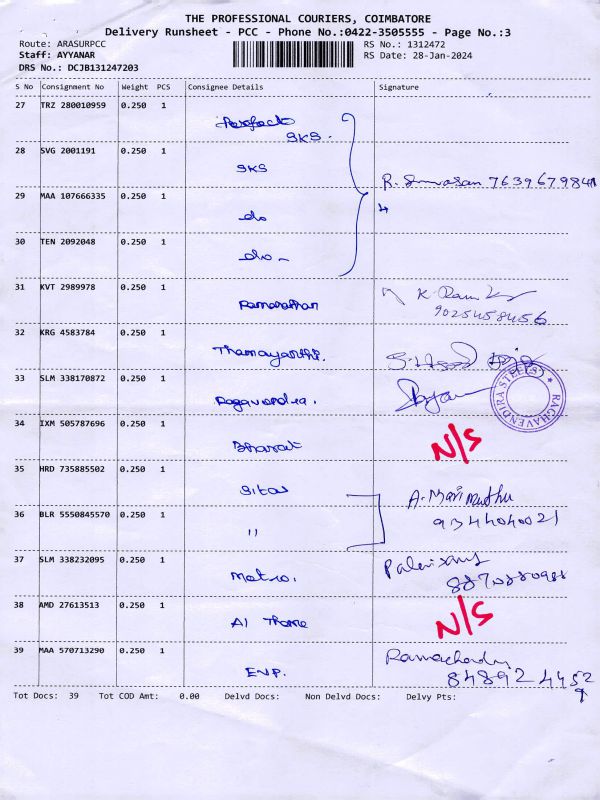 THE PROFESSIONAL COURIERS, COIMBATORE
Delivery Runsheet - PCC - Phone No.:0422-3505555 - Page No.:3
Route: ARASURPCC RS No.: 1312472
Staff: AYYANAR RS Date: 28-Jan-2024
DRS No.: DCJB131247203
S No Consignment No Weight PCS Consignee Details Signature
27 TRZ 280010959 0.250 1
SKS.
28 SVG 2001191 0.250 1
SKS
R. Srinivasan 7639679841
29 MAA 107666335 0.250 1
do
30 TEN 2092048 0.250 1
do
31 KVT 2989978 0.250 1
9025458456
32 KRG 4583784 0.250 1
Thamayanthi.
33 SLM 338170872 0.250 1
Ragavendra.
RAGHAVENDIRA STEELS
34 IXM 505787696 0.250 1
Bharat N/S
35 HRD 735885502 0.250 1
Sitas
A. Marimuthu
36 BLR 5550845570 0.250 1
"
37 SLM 338232095 0.250 1
Metro.
38 AMD 27613513 0.250 1
Al Thome N/S
39 MAA 570713290 0.250 1
Ramachandra
ENP. 848924452
Tot Docs: 39 Tot COD Amt: 0.00 Delvd Docs: Non Delvd Docs: Delvy Pts: